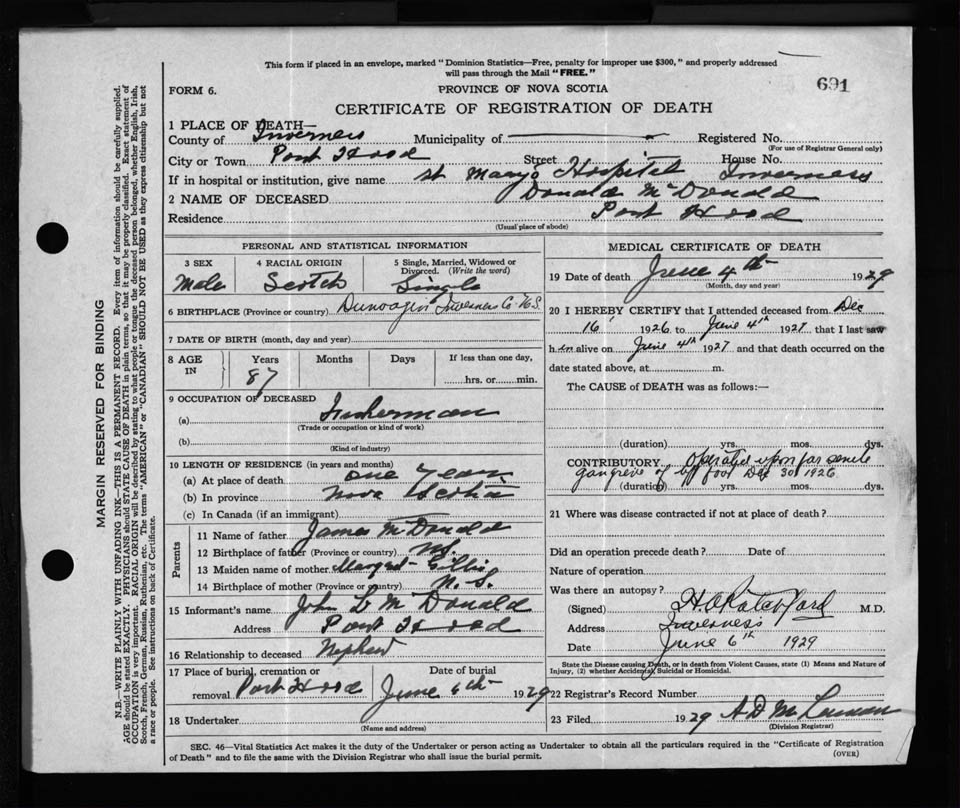 This form if placed in an envelope, marked "Dominion Statistics—Free, penalty for improper use $300," and properly addressed
will pass through the Mail "FREE."
691
FORM 6.
PROVINCE OF NOVA SCOTIA
CERTIFICATE OF REGISTRATION OF DEATH
1 PLACE OF DEATH—
County of Inverness Municipality of Registered No.
(For use of Registrar General only)
City or Town Port Hood Street House No.
If in hospital or institution, give name St Marys Hospital Inverness
2 NAME OF DECEASED Donald McDonald
Residence Port Hood
(Usual place of abode)
PERSONAL AND STATISTICAL INFORMATION
3 SEX 4 RACIAL ORIGIN 5 Single, Married, Widowed or
Divorced. (Write the word)
Male Scotch Single
6 BIRTHPLACE (Province or country) Inverness Co. N.S.
7 DATE OF BIRTH (month, day and year)
8 AGE IN Years Months Days If less than one day,
87 hrs. or min.
9 OCCUPATION OF DECEASED
(a) Fisherman
(Trade or occupation or kind of work)
(b)
(Kind of industry)
10 LENGTH OF RESIDENCE (in years and months)
(a) At place of death one year
(b) In province Nova Scotia
(c) In Canada (if an immigrant)
Parents
11 Name of father James McDonald
12 Birthplace of father (Province or country) N.S.
13 Maiden name of mother Margret Gillis
14 Birthplace of mother (Province or country) N. S.
15 Informant's name John L McDonald
Address Port Hood
16 Relationship to deceased Nephew
17 Place of burial, cremation or removal Port Hood Date of burial June 6th 1929
18 Undertaker
(Name and address)
MEDICAL CERTIFICATE OF DEATH
19 Date of death June 4th 1929
(Month, day and year)
20 I HEREBY CERTIFY that I attended deceased from Dec
16 1926 to June 4th 1927 that I last saw
h im alive on June 4th 1927 and that death occurred on the
date stated above, at m.
The CAUSE of DEATH was as follows:—
(duration) yrs. mos. dys.
CONTRIBUTORY Operated upon for senile
gangrene of foot 30 1926
(duration) yrs. mos. dys.
21 Where was disease contracted if not at place of death?
Did an operation precede death? Date of
Nature of operation
Was there an autopsy?
(Signed) H.O. Ratchford M.D.
Address Inverness
Date June 6th 1929
State the Disease causing Death, or in death from Violent Causes, state (1) Means and Nature of
Injury, (2) whether Accidental, Suicidal or Homicidal.
22 Registrar's Record Number
23 Filed 1929 A D
(Division Registrar)
SEC. 46—Vital Statistics Act makes it the duty of the Undertaker or person acting as Undertaker to obtain all the particulars required in the "Certificate of Registration
of Death" and to file the same with the Division Registrar who shall issue the burial permit.
(OVER)
MARGIN RESERVED FOR BINDING
N.B.—WRITE PLAINLY WITH UNFADING INK—THIS IS A PERMANENT RECORD. Every item of information should be carefully supplied.
AGE should be stated EXACTLY. PHYSICIANS should STATE CAUSE OF DEATH in plain terms, so that it may be properly classified. Exact statement of
OCCUPATION is very important. RACIAL ORIGIN will be described by stating to what people or tongue the deceased person belonged, whether English, Irish,
Scotch, French, German, Russian, Ruthenian, etc. The terms "AMERICAN" or "CANADIAN" SHOULD NOT BE USED as they express citizenship but not
a race or people. See instructions on back of Certificate.